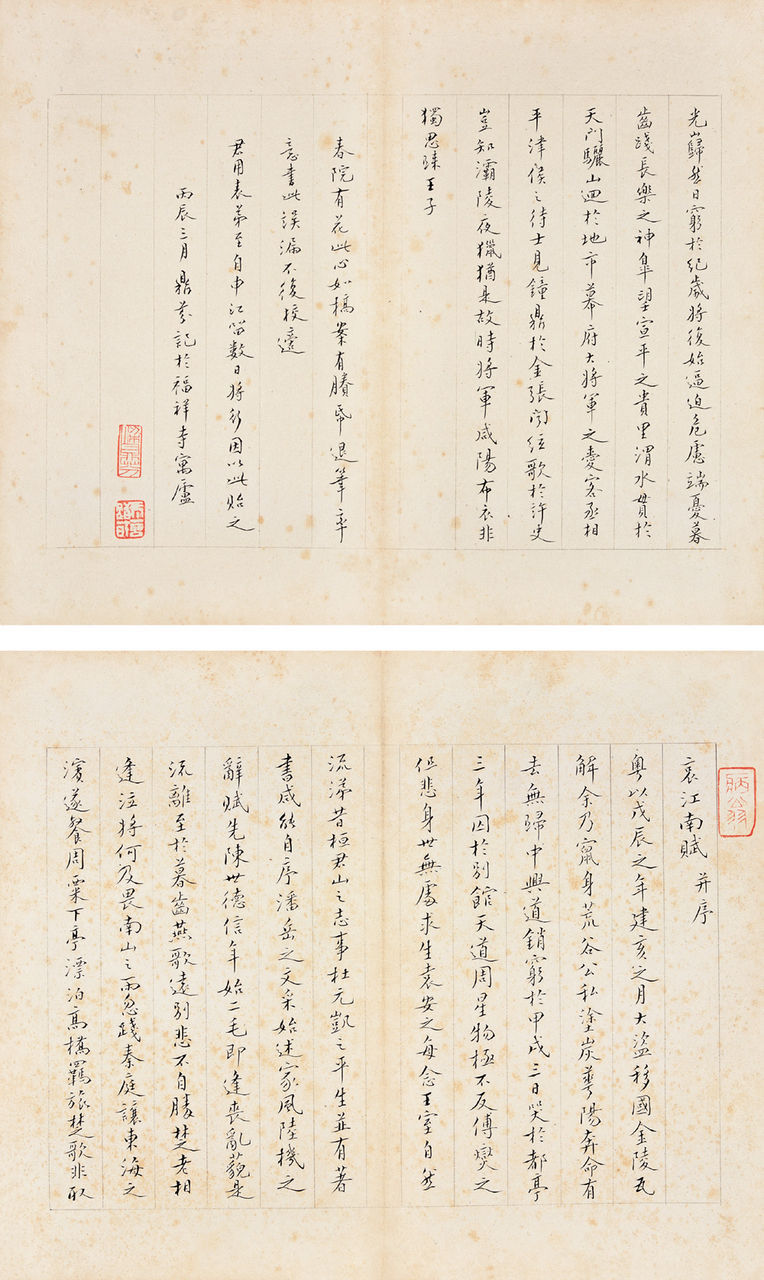 光巋然日窮於紀歲將復始逼迫危慮端憂暮
齒踐長樂之神臯望宣平之貴里渭水貫於
天門驪山迴於地市幕府大將軍之愛客丞相
平津侯之待士見鐘鼎於金張聞絃歌於許史
豈知灞陵夜獵猶是故時將軍咸陽布衣非
獨思歸王子
春院有花此心如槁案有賸帋退筆率
意書此誤漏不復校還
君用表弟至自申江留數日將行因以此貽之
丙辰三月鼎芬記於福祥寺寓廬
哀江南賦 并序
粵以戊辰之年建亥之月大盜移國金陵瓦
解余乃竄身荒谷公私塗炭華陽奔命有
去無歸中興道銷窮於甲戌三日哭於都亭
三年囚於別館天道周星物極不反傅燮之
但悲身世無處求生袁安之每念王室自然
流涕昔桓君山之志事杜元凱之平生並有著
書咸能自序潘岳之文采始述家風陸機之
辭賦先陳世德信年始二毛即逢喪亂藐是
流離至於暮齒燕歌遠別悲不自勝楚老相
逢泣將何及畏南山之雨忽踐秦庭讓東海之
濱遂餐周粟下亭漂泊高橋羈旅楚歌非取